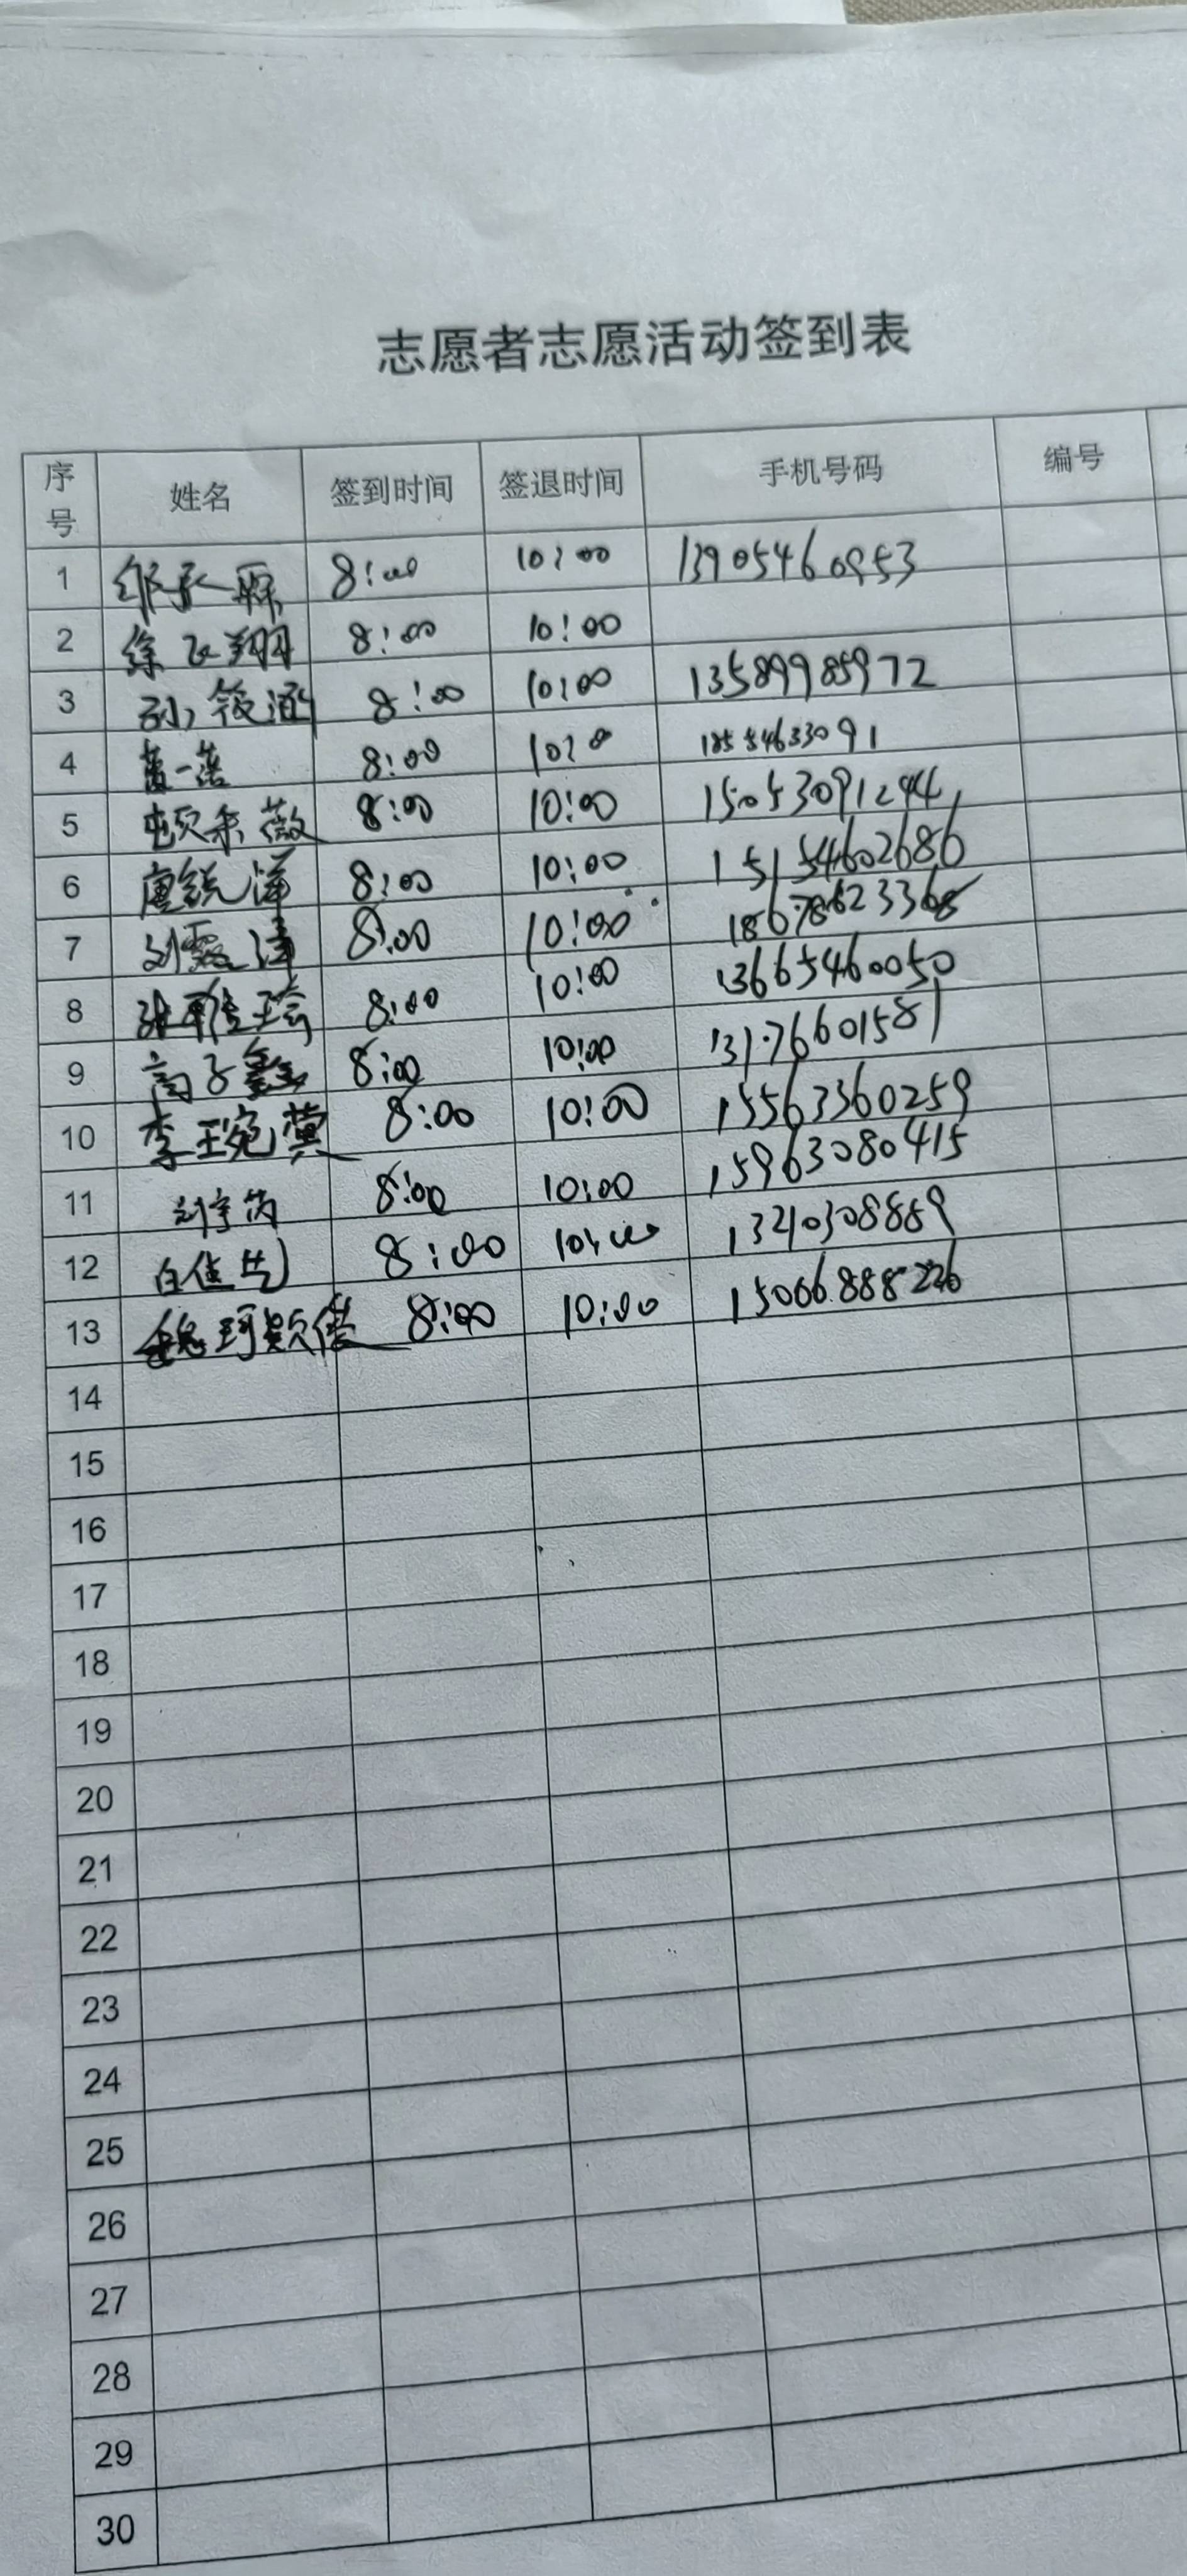 志愿者志愿活动签到表
序号 姓名 签到时间 签退时间 手机号码 编号
1 8:00 10:00 13905460953
2 徐飞翔 8:00 10:00
3 孙筱涵 8:00 10:00 13589985972
4 董一诺 8:00 10:0 18554633091
5 8:00 10:00 15053091244
6 唐锐泽 8:00 10:00 15154602686
7 刘霞清 8:00 10:00 18678623368
8 张雅瑜 8:00 10:00 13665460050
9 高子鑫 8:00 10:00 13176601581
10 李琬莹 8:00 10:00 15563360259
11 刘宇芮 8:00 10:00 15963080415
12 白佳艺 8:00 10:00 13210308889
13 魏珂颖 8:00 10:00 15066888226
14
15
16
17
18
19
20
21
22
23
24
25
26
27
28
29
30